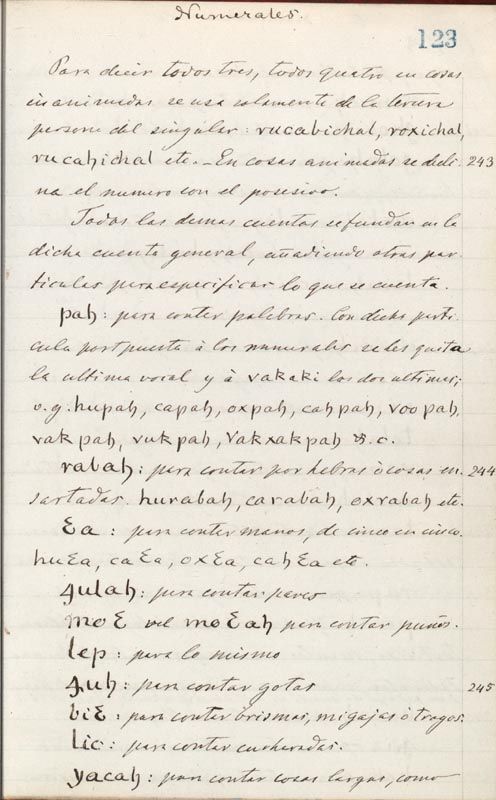 Numerales.
123
Para decir todos tres, todos quatro en cosas
inanimadas se usa solamente de la tercera
persona del singular: vucabichal, roxichal,
rucahichal etc. – En cosas animadas se decli- 243
na el numero con el posesivo.
Todas las demas cuentas se fundan en la
dicha cuenta general, añadiendo otras par-
ticulas para especificar lo que se cuenta.
pah: para contar palabras. Con dicha parti-
cula postpuesta à los numerales se les quita
la ultima vocal y à vakaki las dos ultimas;
v.g. hupah, capah, oxpah, cahpah, voopah,
vakpah, vukpah, vakxakpah &.c.
rabah: para contar por hebras ò cosas en- 244
sartadas. hurabah, carabah, oxrabah etc.
Ɛa: para contar manos, de cinco en cinco.
huƐa, caƐa, oxƐa, cahƐa etc.
ꜭulah: para contar pares
moƐ vel moƐah para contar puños.
lep: para lo mismo
ꜭuh: para contar gotas 245
biƐ: para contar brismas, migajas ò tragos.
lic: para contar cucharadas.
yacah: para contar cosas largas, como